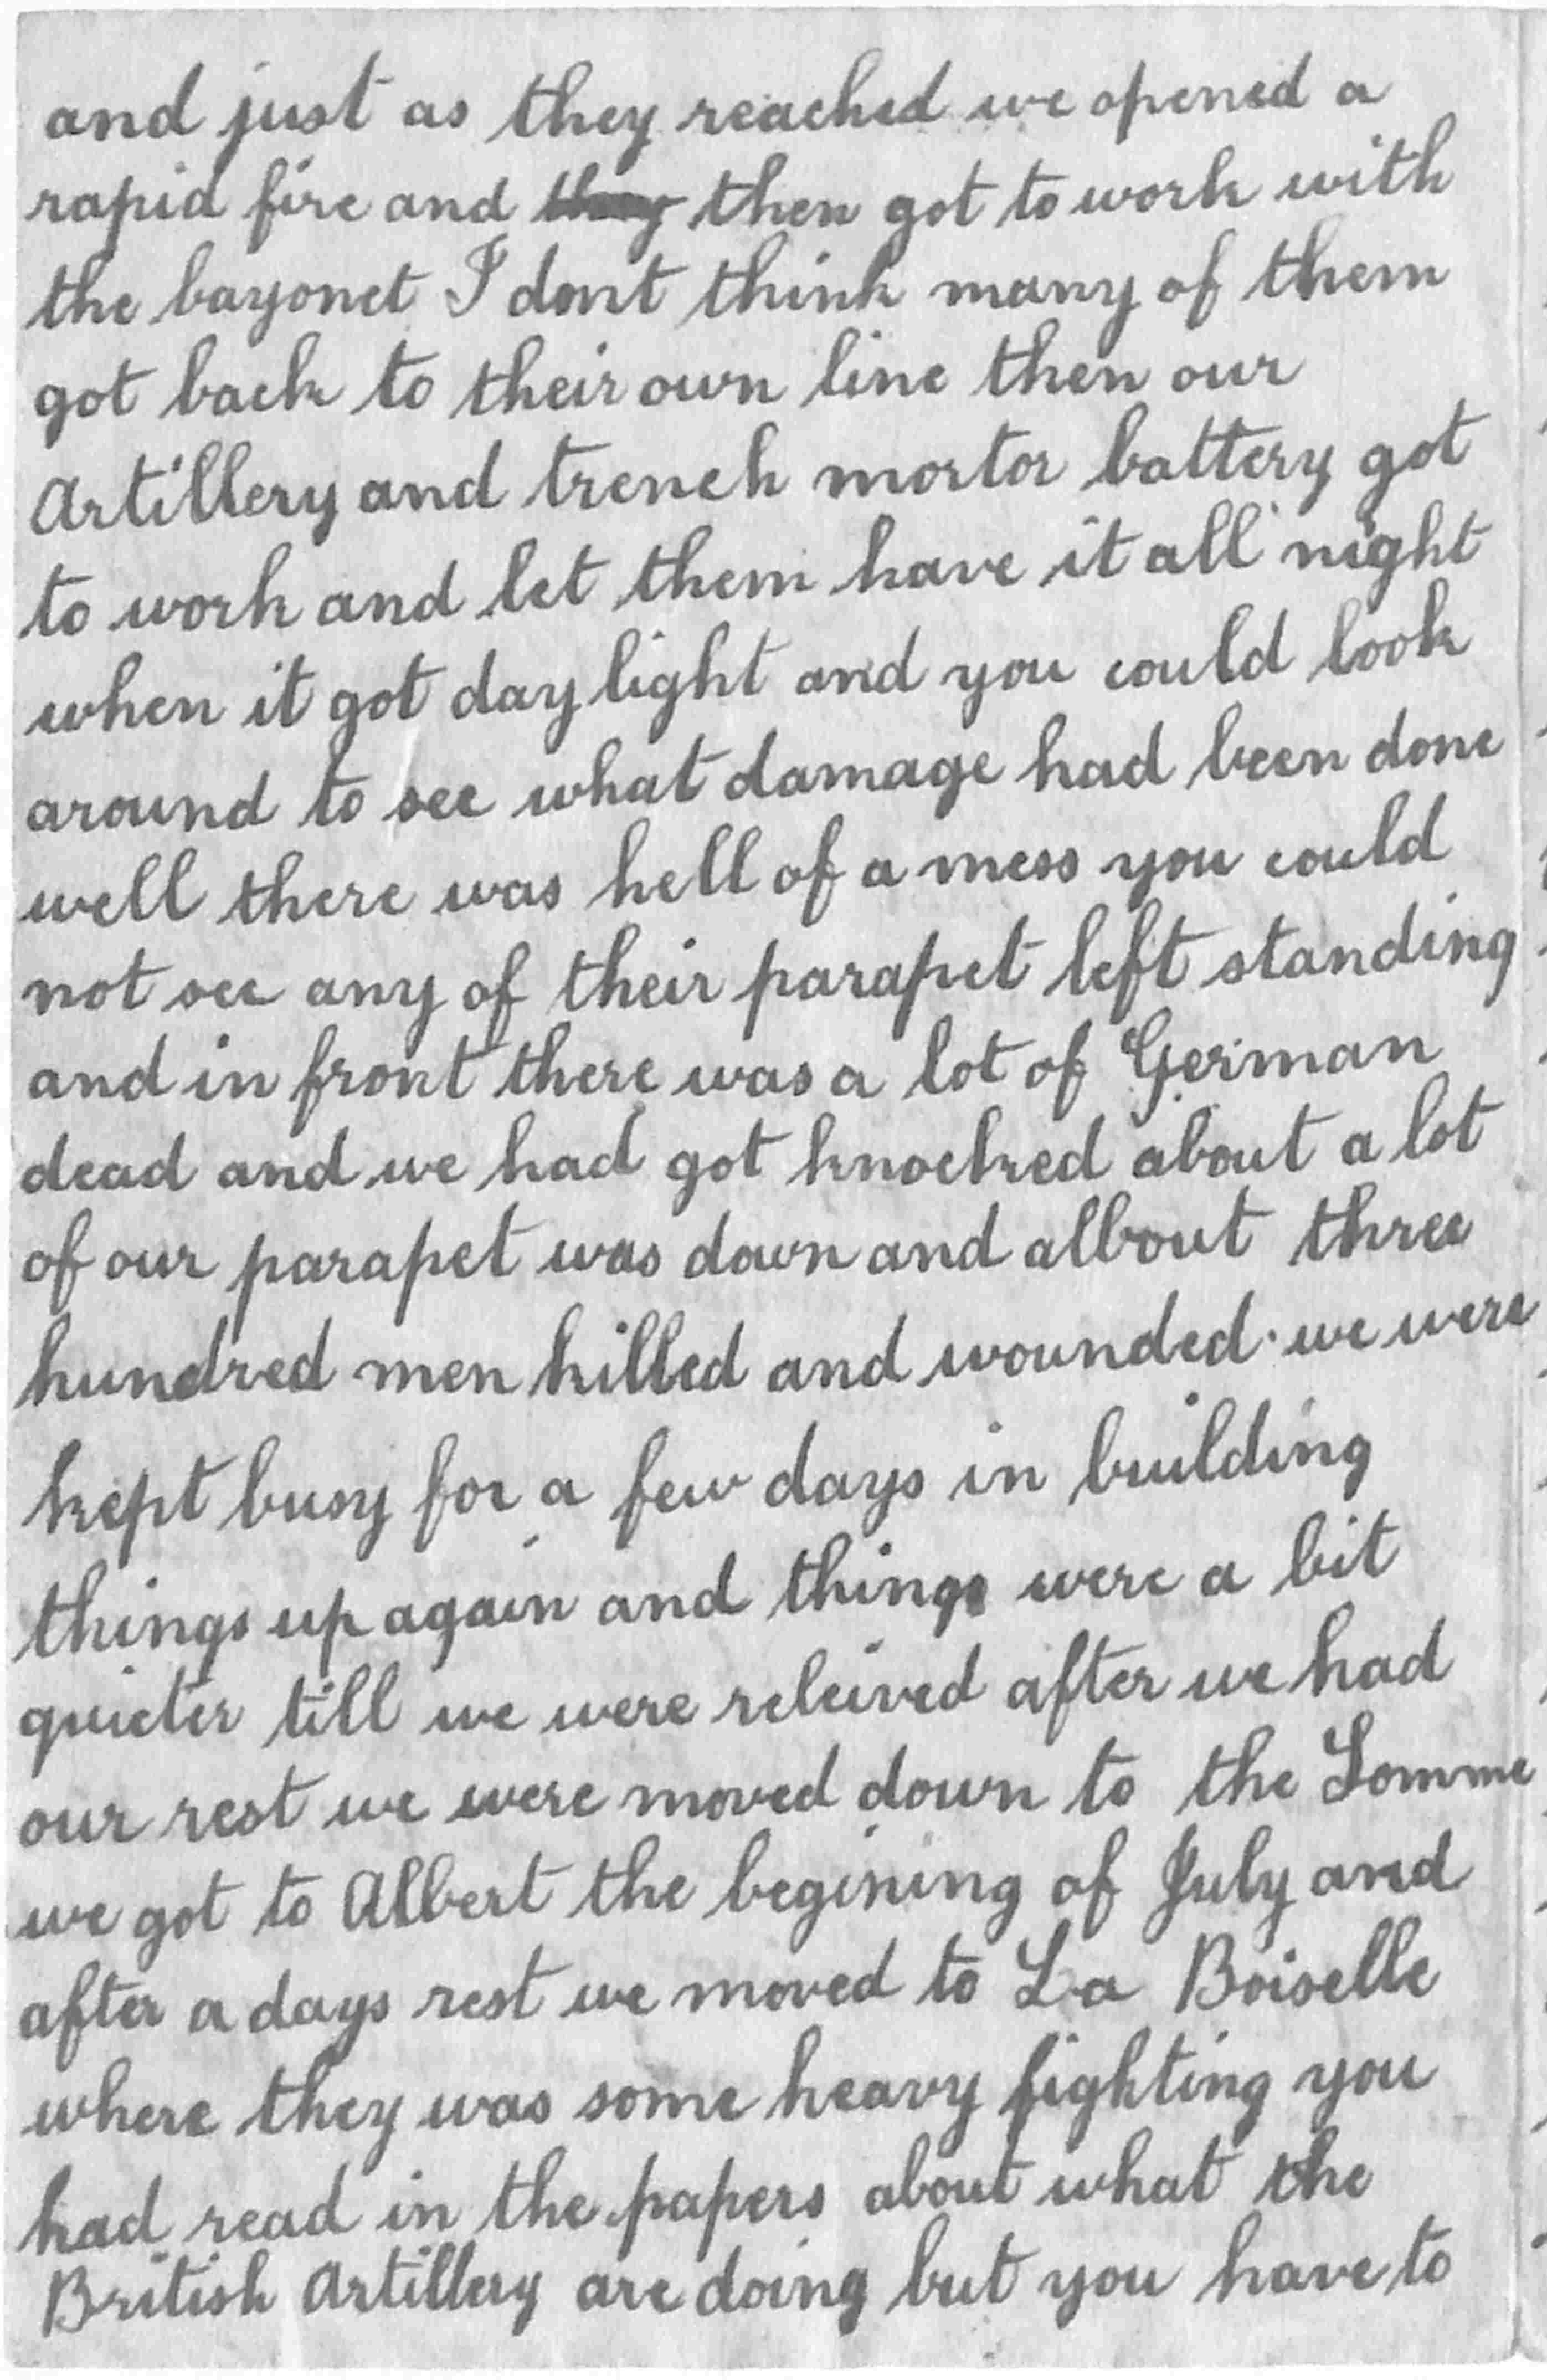 and just as they reached we opened a
rapid fire and they then got to work with
the bayonet I dont think many of them
got back to their own line then our
Artillery and trench mortor battery got
to work and let them have it all night
when it got day light and you could look
around to see what damage had been done
well there was hell of a mess you could
not see any of their parapet left standing
and in front there was a lot of German
dead and we had got knocked about a lot
of our parapet was down and allbout three
hundred men killed and wounded. we were
kept busy for a few days in building
things up again and things were a bit
quieter till we were releived after we had
our rest we were moved down to the Somme
we got to Albert the begining of July and
after a days rest we moved to La Boiselle
where they was some heavy fighting you
had read in the papers about what the
British Artillery are doing but you have to